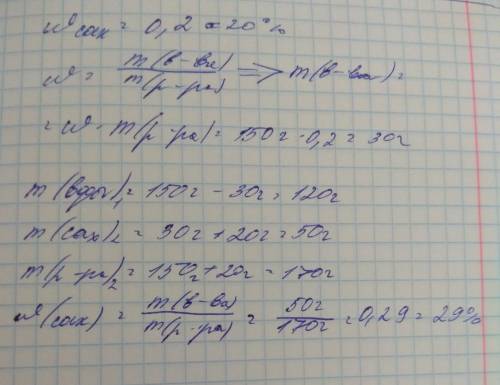 w сах = 0,2 = 20%
w = m(в-ва) / m(р-ра) => m(в-ва) =
= w · m(р-ра) = 150г · 0,2 = 30г
m(воды)₁ = 150г - 30г = 120г
m(сах)₂ = 30г + 20г = 50г
m(р-ра)₂ = 150г + 20г = 170г
w(сах) = m(в-ва) / m(р-ра) = 50г / 170г = 0,29 = 29%